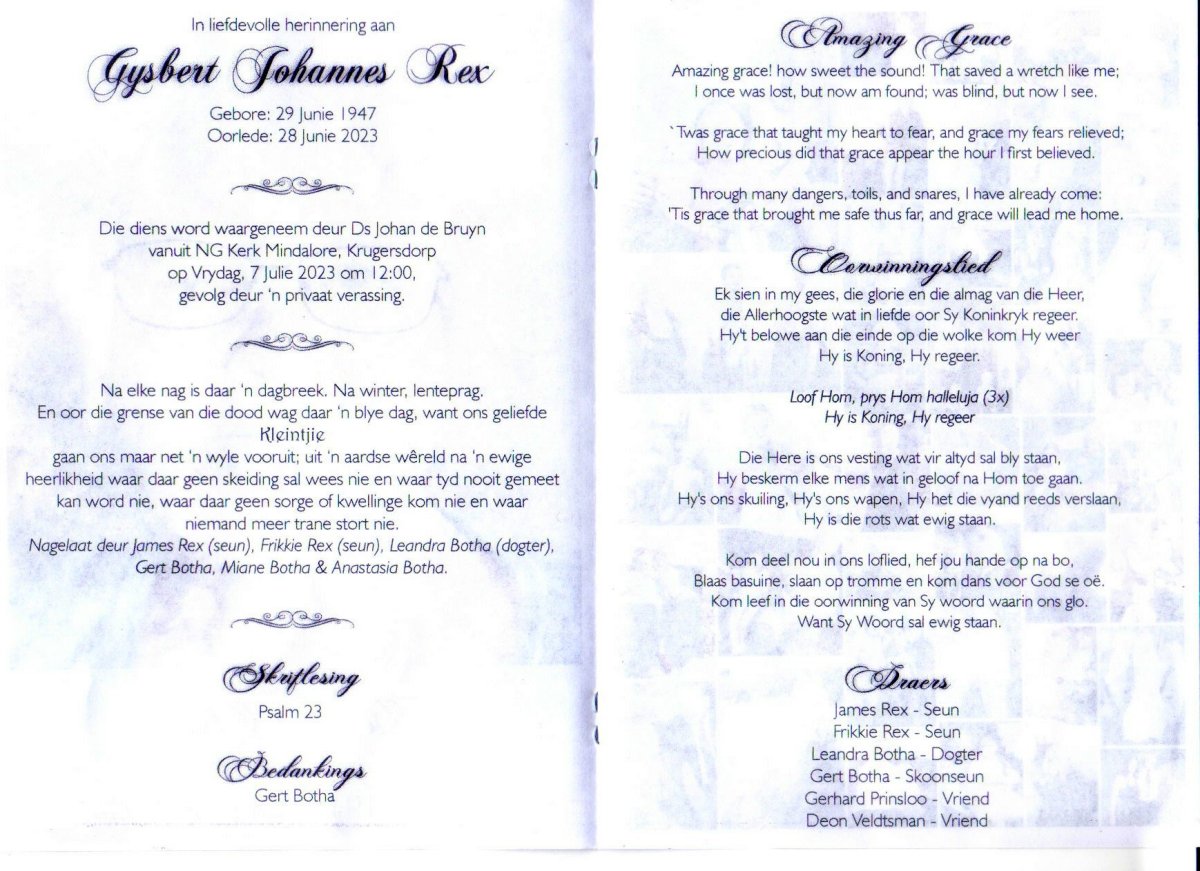 In liefdevolle herinnering aan
Gysbert Johannes Rex
Gebore: 29 Junie 1947
Oorlede: 28 Junie 2023
Die diens word waargeneem deur Ds Johan de Bruyn
vanuit NG Kerk Mindalore, Krugersdorp
op Vrydag, 7 Julie 2023 om 12:00,
gevolg deur 'n privaat verassing.
Na elke nag is daar 'n dagbreek. Na winter, lenteprag.
En oor die grense van die dood wag daar 'n blye dag, want ons geliefde
Kleintjie
gaan ons maar net 'n wyle vooruit; uit 'n aardse wêreld na 'n ewige
heerlikheid waar daar geen skeiding sal wees nie en waar tyd nooit gemeet
kan word nie, waar daar geen sorge of kwellinge kom nie en waar
niemand meer trane stort nie.
Nagelaat deur James Rex (seun), Frikkie Rex (seun), Leandra Botha (dogter),
Gert Botha, Miane Botha & Anastasia Botha.
Skriflesing
Psalm 23
Bedankings
Gert Botha
Amazing Grace
Amazing grace! how sweet the sound! That saved a wretch like me;
I once was lost, but now am found; was blind, but now I see.
`Twas grace that taught my heart to fear, and grace my fears relieved;
How precious did that grace appear the hour I first believed.
Through many dangers, toils, and snares, I have already come:
'Tis grace that brought me safe thus far, and grace will lead me home.
Oorwinningslied
Ek sien in my gees, die glorie en die almag van die Heer,
die Allerhoogste wat in liefde oor Sy Koninkryk regeer.
Hy't belowe aan die einde op die wolke kom Hy weer
Hy is Koning, Hy regeer.
Loof Hom, prys Hom halleluja (3x)
Hy is Koning, Hy regeer
Die Here is ons vesting wat vir altyd sal bly staan,
Hy beskerm elke mens wat in geloof na Hom toe gaan.
Hy's ons skuiling, Hy's ons wapen, Hy het die vyand reeds verslaan,
Hy is die rots wat ewig staan.
Kom deel nou in ons loflied, hef jou hande op na bo,
Blaas basuine, slaan op tromme en kom dans voor God se oë.
Kom leef in die oorwinning van Sy woord waarin ons glo.
Want Sy Woord sal ewig staan.
Draers
James Rex - Seun
Frikkie Rex - Seun
Leandra Botha - Dogter
Gert Botha - Skoonseun
Gerhard Prinsloo - Vriend
Deon Veldtsman - Vriend